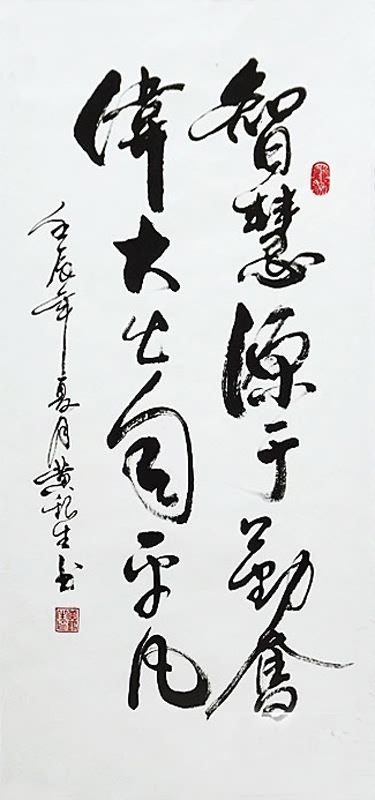 智慧源于勤奮
偉大出自平凡
壬辰年夏月黄振生书